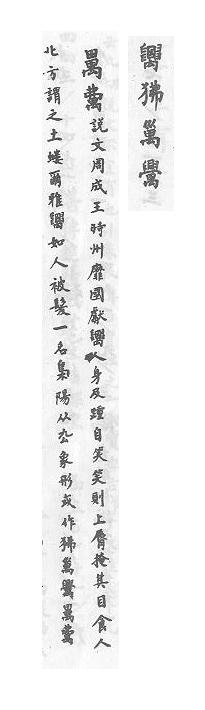 狒
說文周成王時州靡國獻人身及踵自笑笑則上脣掩其目食人
北方謂之土螻爾雅如人被髮一名梟陽从厹象形或作狒